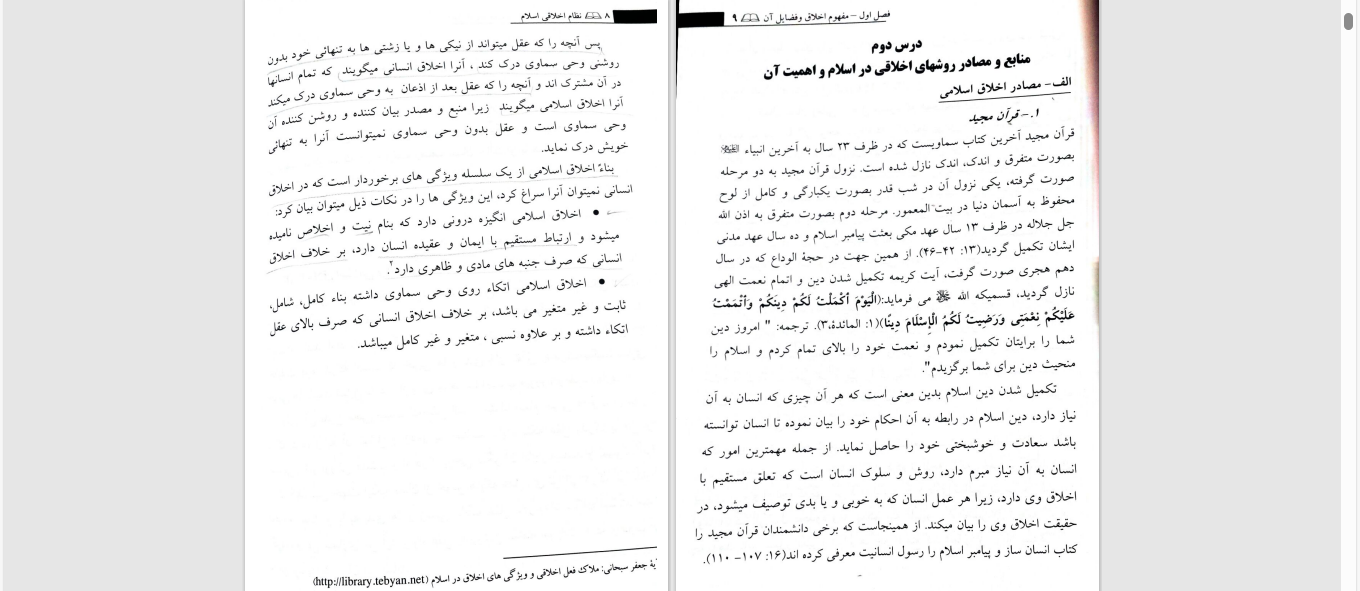 ۸ نظام اخلاقی اسلام
پس آنچه را که عقل میتواند از نیکی ها و یا زشتی ها به تنهائی خود بدون
روشنی وحی سماوی درک کند ، آنرا اخلاق انسانی میگویند که تمام انسانها
در آن مشترک اند و آنچه را که عقل بعد از اذعان به وحی سماوی درک میکند
آنرا اخلاق اسلامی میگویند زیرا منبع و مصدر بیان کننده و روشن کننده آن
وحی سماوی است و عقل بدون وحی سماوی نمیتوانست آنرا به تنهائی
خویش درک نماید.
بناءً اخلاق اسلامی از یک سلسله ویژگی های برخوردار است که در اخلاق
انسانی نمیتوان آنرا سراغ کرد، این ویژگی ها را در نکات ذیل میتوان بیان کرد:
• اخلاق اسلامی انگیزه درونی دارد که بنام نیت و اخلاص نامیده
میشود و ارتباط مستقیم با ایمان و عقیده انسان دارد، بر خلاف اخلاق
انسانی که صرف جنبه های مادی و ظاهری دارد.
• اخلاق اسلامی اتکاء روی وحی سماوی داشته بناء کامل، شامل،
ثابت و غیر متغیر می باشد، بر خلاف اخلاق انسانی که صرف بالای عقل
اتکاء داشته و بر علاوه نسبی ، متغیر و غیر کامل میباشد.
جعفر سبحانی: ملاک فعل اخلاقی و ویژگی های اخلاق در اسلام (http://library.tebyan.net)
فصل اول – مفهوم اخلاق وفضایل آن ۹
درس دوم
منابع و مصادر روشهای اخلاقی در اسلام و اهمیت آن
الف- مصادر اخلاق اسلامی
۱.- قرآن مجید
قرآن مجید آخرین کتاب سماویست که در ظرف ۲۳ سال به آخرین انبیاء ﷺ
بصورت متفرق و اندک، اندک نازل شده است. نزول قرآن مجید به دو مرحله
صورت گرفته، یکی نزول آن در شب قدر بصورت یکبارگی و کامل از لوح
محفوظ به آسمان دنیا در بیت المعمور. مرحله دوم بصورت متفرق به اذن الله
جل جلاله در ظرف ۱۳ سال عهد مکی بعثت پیامبر اسلام و ده سال عهد مدنی
ایشان تکمیل گردید(۱۳: ۴۲-۴۶). از همین جهت در حجة الوداع که در سال
دهم هجری صورت گرفت، آیت کریمه تکمیل شدن دین و اتمام نعمت الهی
نازل گردید، قسمیکه الله ﷻ می فرماید:(الْيَوْمَ أَكْمَلْتُ لَكُمْ دِينَكُمْ وَأَتْمَمْتُ
عَلَيْكُمْ نِعْمَتِي وَرَضِيتُ لَكُمُ الْإِسْلَامَ دِينًا)(۱: المائدة،۳). ترجمه: " امروز دین
شما را برایتان تکمیل نمودم و نعمت خود را بالای تمام کردم و اسلام را
منحیث دین برای شما برگزیدم".
تکمیل شدن دین اسلام بدین معنی است که هر آن چیزی که انسان به آن
نیاز دارد، دین اسلام در رابطه به آن احکام خود را بیان نموده تا انسان توانسته
باشد سعادت و خوشبختی خود را حاصل نماید. از جمله مهمترین امور که
انسان به آن نیاز مبرم دارد، روش و سلوک انسان است که تعلق مستقیم با
اخلاق وی دارد، زیرا هر عمل انسان که به خوبی و یا بدی توصیف میشود، در
حقیقت اخلاق وی را بیان میکند. از همینجاست که برخی دانشمندان قرآن مجید را
کتاب انسان ساز و پیامبر اسلام را رسول انسانیت معرفی کرده اند(۱۶: ۱۰۷- ۱۱۰).